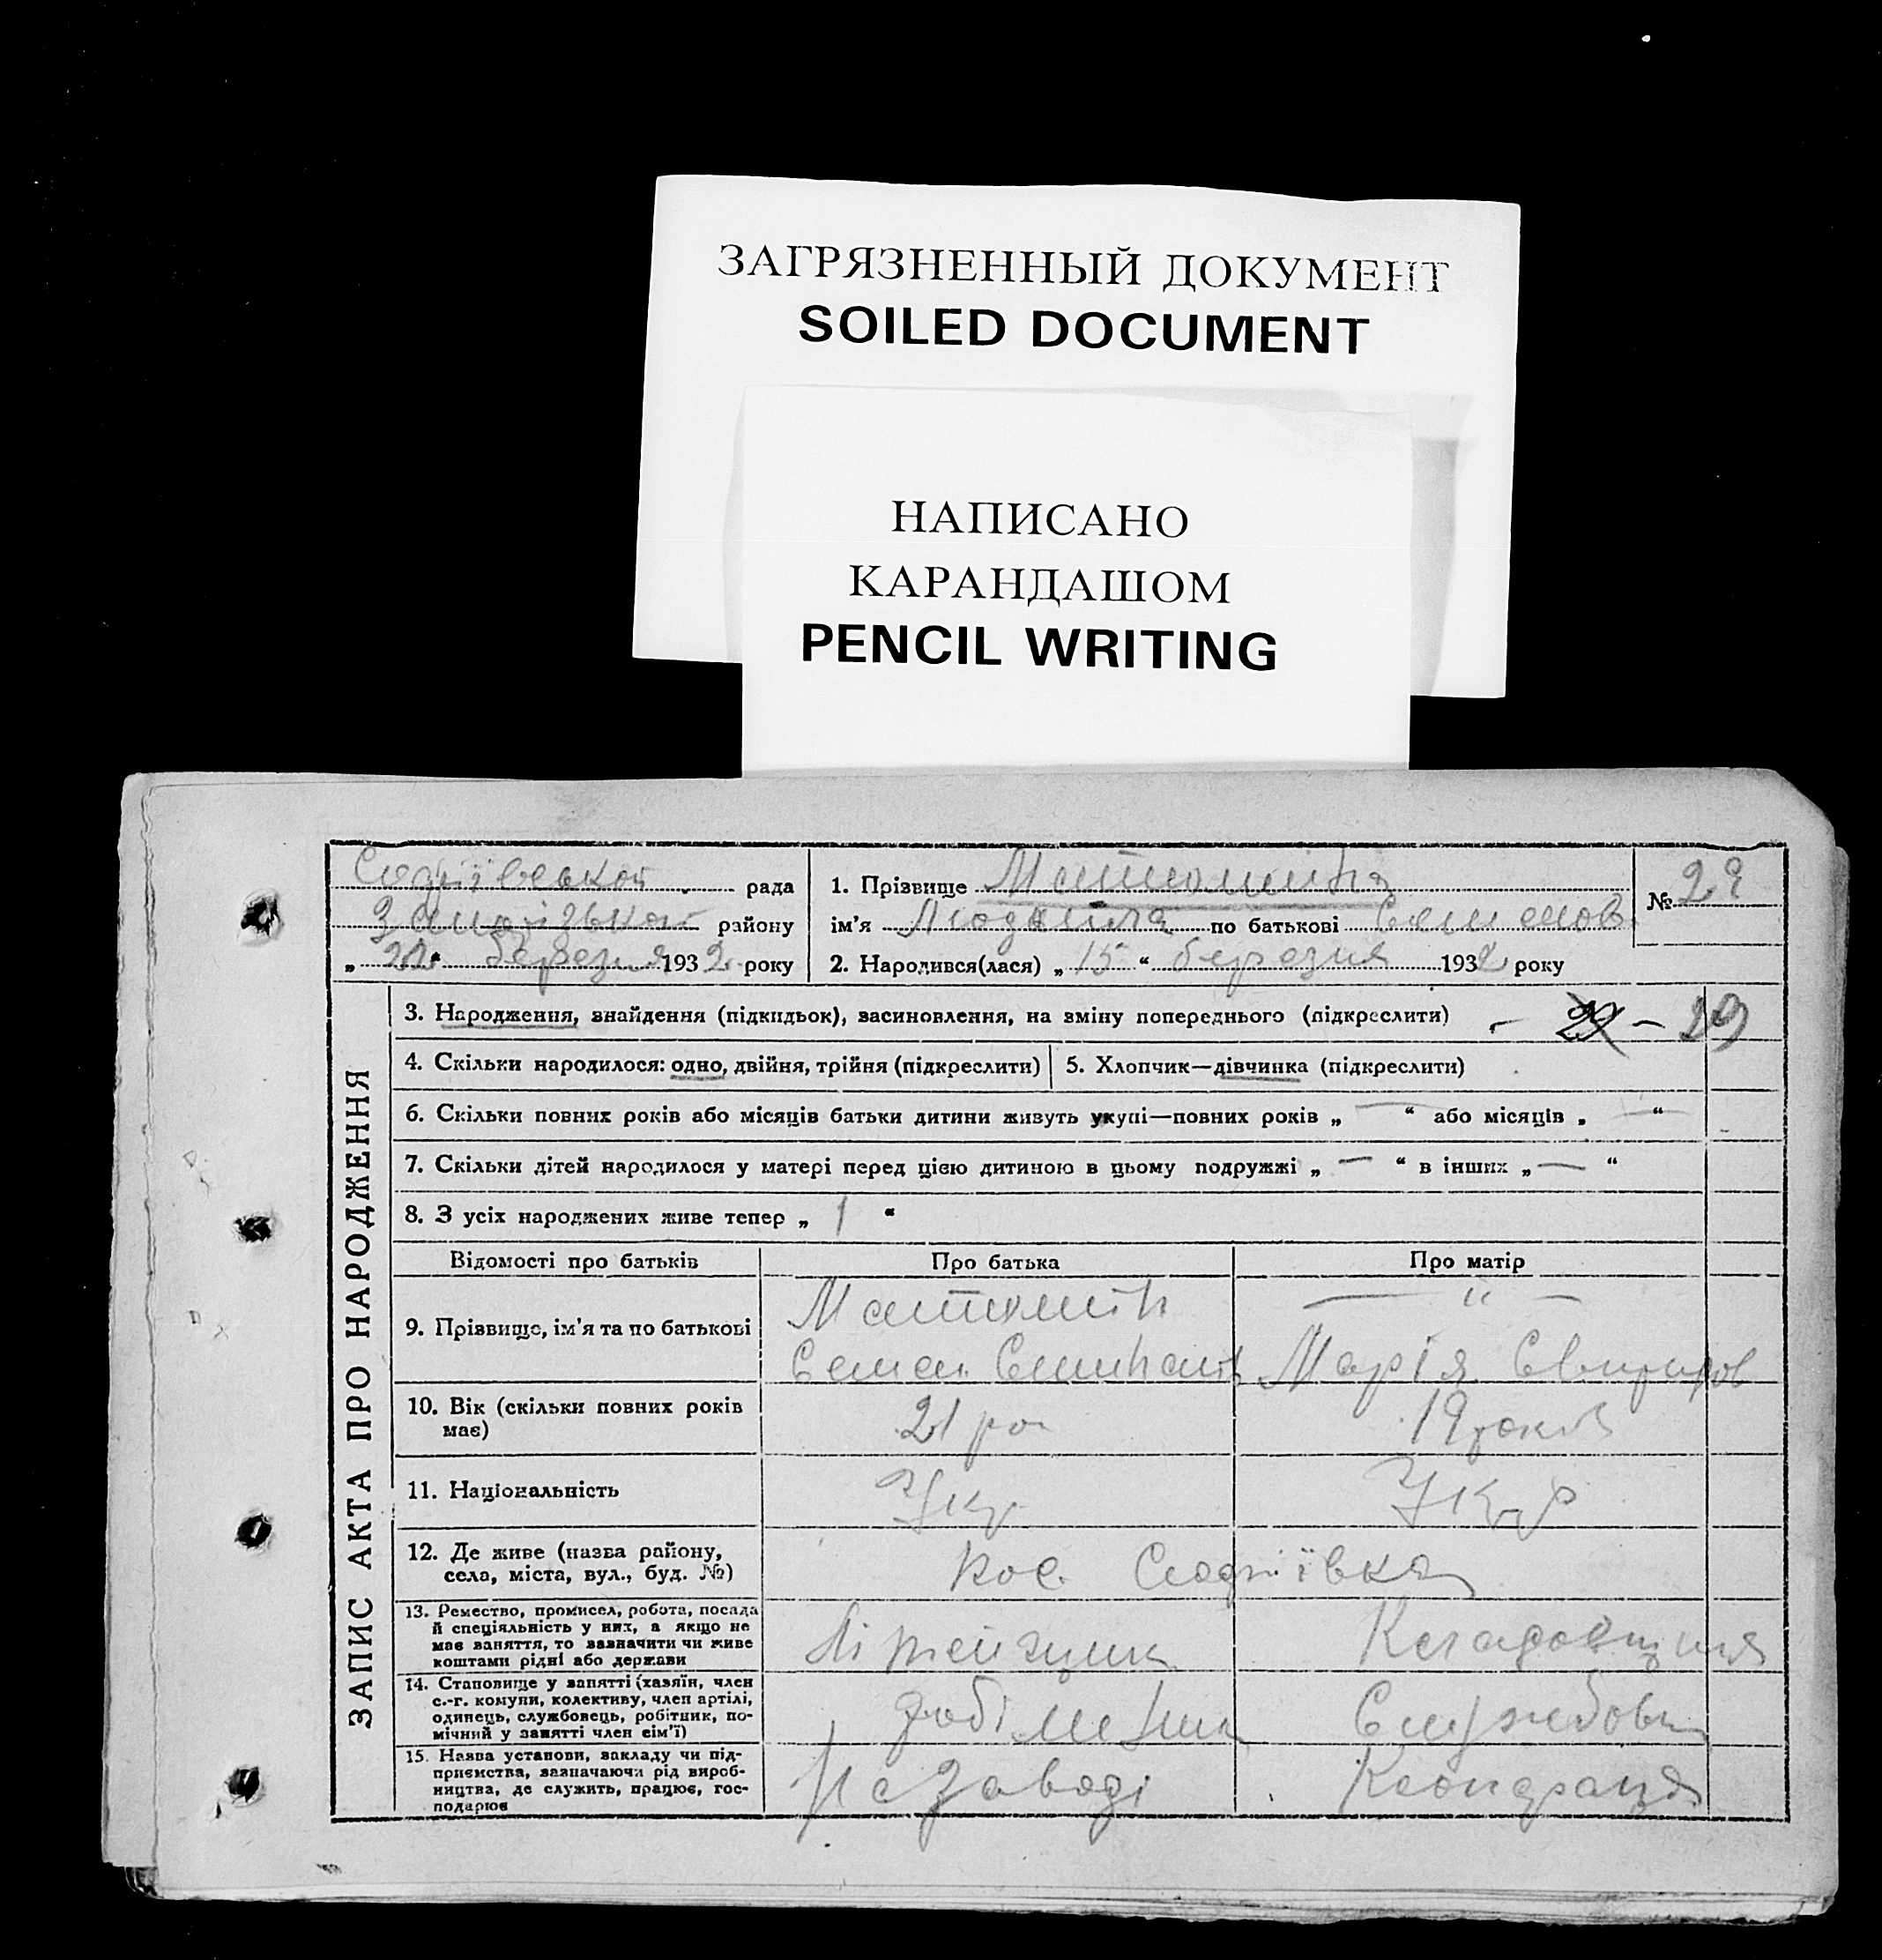 ЗАГРЯЗНЕННЫЙ ДОКУМЕНТ
SOILED DOCUMENT
НАПИСАНО
КАРАНДАШОМ
PENCIL WRITING
Софіївської рада
району
„ 22 “ березня 1932 року
1. Прізвище Матюшіна
№ 29
ім'я Людмила по батькові Семенов
2. Народився(лася) „ 15 “ березня 1932 року
ЗАПИС АКТА ПРО НАРОДЖЕННЯ
3. Народження, знайдення (підкидьок), засиновлення, на зміну попереднього (підкреслити) - 29 - 29
4. Скільки народилося: одно, двійня, трійня (підкреслити)
5. Хлопчик—дівчинка (підкреслити)
6. Скільки повних років або місяців батьки дитини живуть укупі—повних років „ — “ або місяців „ — “
7. Скільки дітей народилося у матері перед цією дитиною в цьому подружжі „ — “ в інших „ — “
8. З усіх народжених живе тепер „ 1 “
Відомості про батьків
Про батька
Про матір
9. Прізвище, ім'я та по батькові
Матюшін
— " —
Семен
Марія Свиридов
10. Вік (скільки повних років має)
21 ро
19 років
11. Національність
Укр
Укр
12. Де живе (назва району, села, міста, вул., буд. №)
Софіївка
13. Ремество, промисел, робота, посада й спеціяльність у них, а якщо не має заняття, то зазначити чи живе коштами рідні або держави
Літейщик
Кладовщиця
14. Становище у занятті (хазяїн, член с.-г. комуни, колективу, член артілі, одинець, службовець, робітник, помічний у занятті член сім'ї)
робітник
Службовець
15. Назва установи, закладу чи підприємства, зазначаючи рід виробництва, де служить, працює, господарює
На заводі